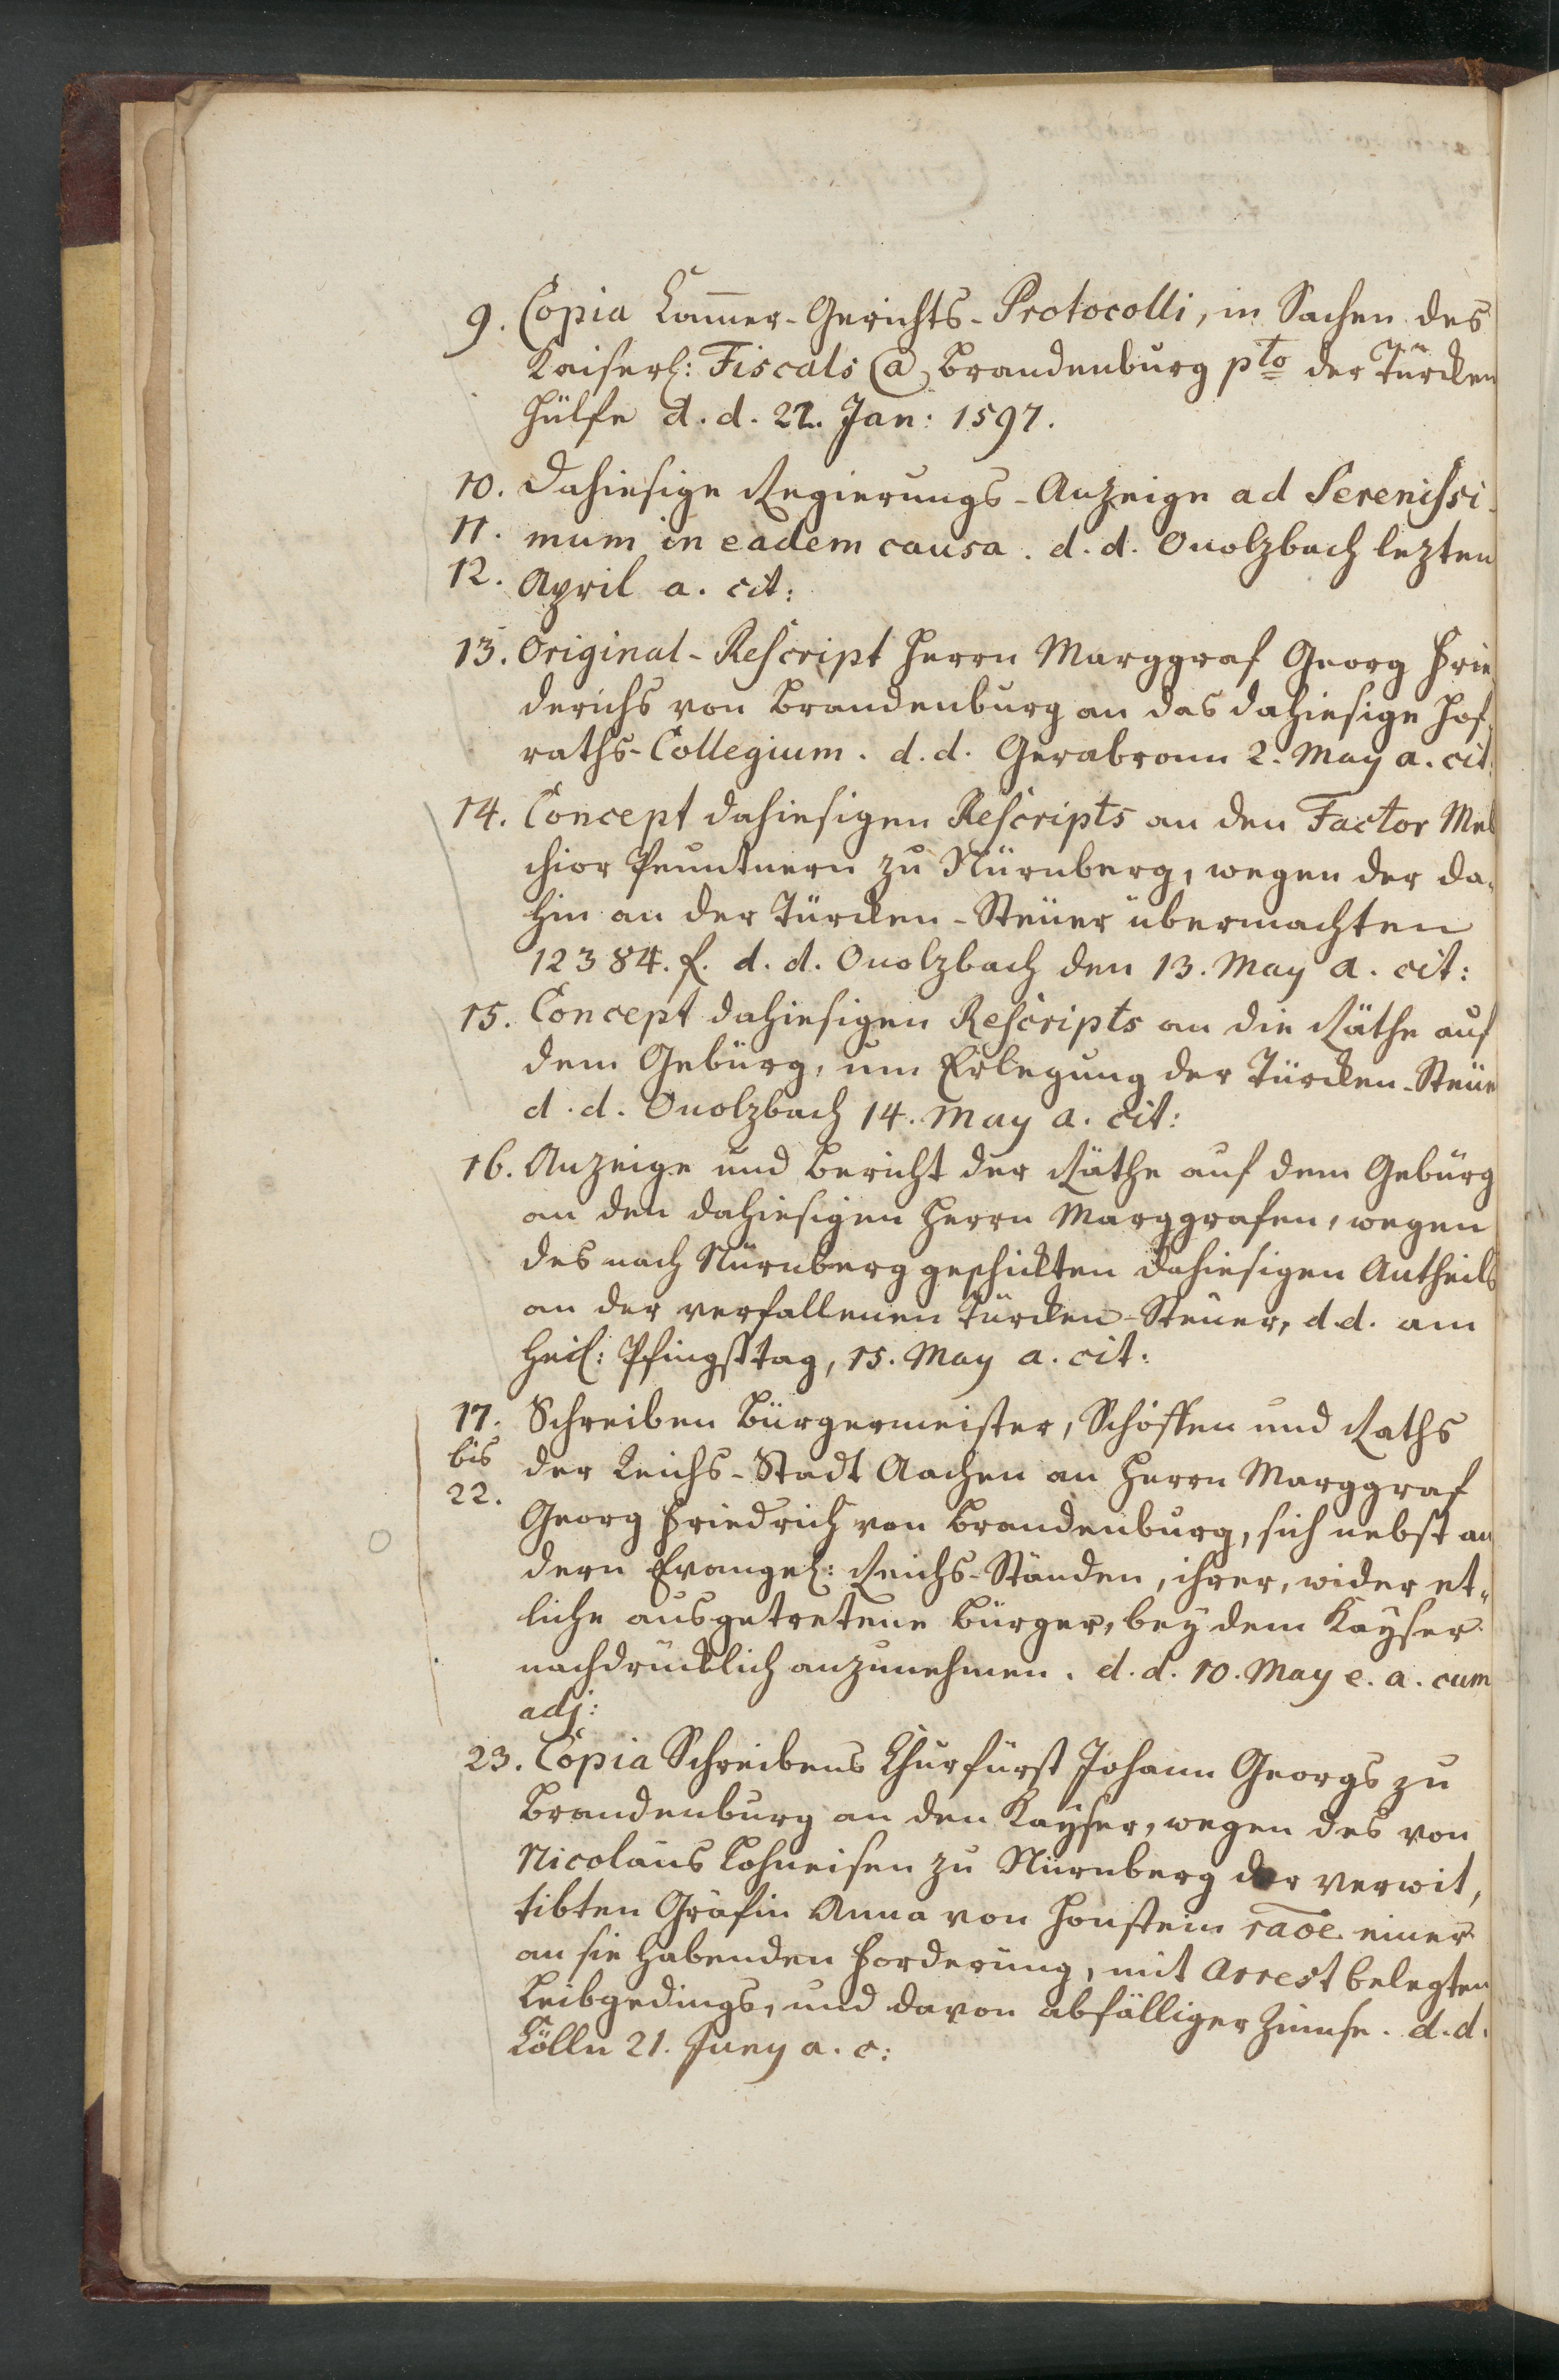 9. Copia Cam̅er-Gerichts-Protocolli, in Sachen des
Kaiserl: Fiscals Ca Brandenburg pto der Türcken
Hülfe d. d. 22. Jan: 1597.
10. Dahiesige Regierungs-Anzeige ad Serenissi-
11. mum in eadem causa. d. d. Onolzbach lezten
12. April a. cit:
13. Original-Rescript Herrn Marggraf Georg Frie
derichs von Brandenburg an das dahiesige Hof-
raths-Collegium. d. d. Gerabronn 2. May a. cit:
14. Concept dahiesigen Rescripts an den Factor Mel
chior Peuntnern zu Nürnberg, wegen der da-
hin an der Türcken-Steuer übermachten
12384. f. d. d. Onolzbach den 13. May a. cit:
15. Concept dahiesigen Rescripts an die Räthe auf
dem Gebürg, um Erlegung der Türcken-Steue
d. d. Onolzbach 14. May a. cit:
16. Anzeige und Bericht der Räthe auf dem Gebürg
an den dahiesigen Herrn Marggrafen, wegen
des nach Nürnberg geschickten dahiesigen Antheils
an der verfallenen Türcken-Steuer, d. d. am
Heil: Pfingsttag, 15. May a. cit:
17. Schreiben Bürgermeister, Schöffen und Raths
bis der Reichs-Stadt Aachen an Herrn Marggraf
22. Georg Friedrich von Brandenburg, sich nebst an
dern Evangel: Reichs-Ständen, ihrer, wider et-
liche ausgetretene Bürger, bey dem Kayser
nachdrücklich anzunehmen. d. d. 10. May e. a. cum
adj:
23. Copia Schreibens Churfürst Johann Georgs zu
Brandenburg an den Kayser, wegen des von
Nicolaus Lohneisen zu Nürnberg der verwit,
tibten Gräfin Anna von Honstein raōe einer
an sie habenden Forderung, mit Arrest belegten
Leibgedings, und davon abfälliger Zinnse. d. d.
Cölln 21. Juny a. c: